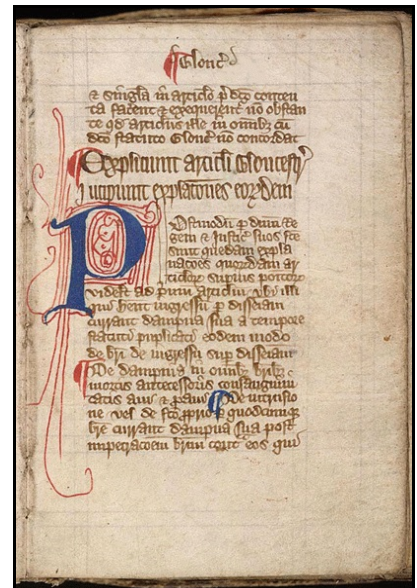 Glouc
& singla in articlo p̱ dc̄o conten
ta facent & exequerent̄ nō obstan
te qd̄ articlus ille in om̄ibȝ cū
dc̄o statuto Glouc̄ nō concordat
Expliciunt articli Gloucestr̄
Incipiunt explac̄ones eorȝdem
Postmodū p̱ dnm̄ Re
gem & Justic̄ suos fc̄e
sunt quedam expla
nac̄ones quorȝdam ar
ticlorȝ supius poitorȝ
videlt̄ ad p̱mm articlm̄ vbi illi
qui hent̄ ingressū p̱ disseiam
currant dampna sua a tempore
statuti puplicati eodem modo
de br̄i de ingressu sup̱ disseiam
De dampnis in om̄ibȝ brībȝ
mortis antecessoris consanguini
tatis aui & p̱aui De intrusio
ne vel de fc̄o p̱prio p̱ quodcumqȝ
bre currant dampna sua post
impetrac̄oem brīm contͣ eos qui